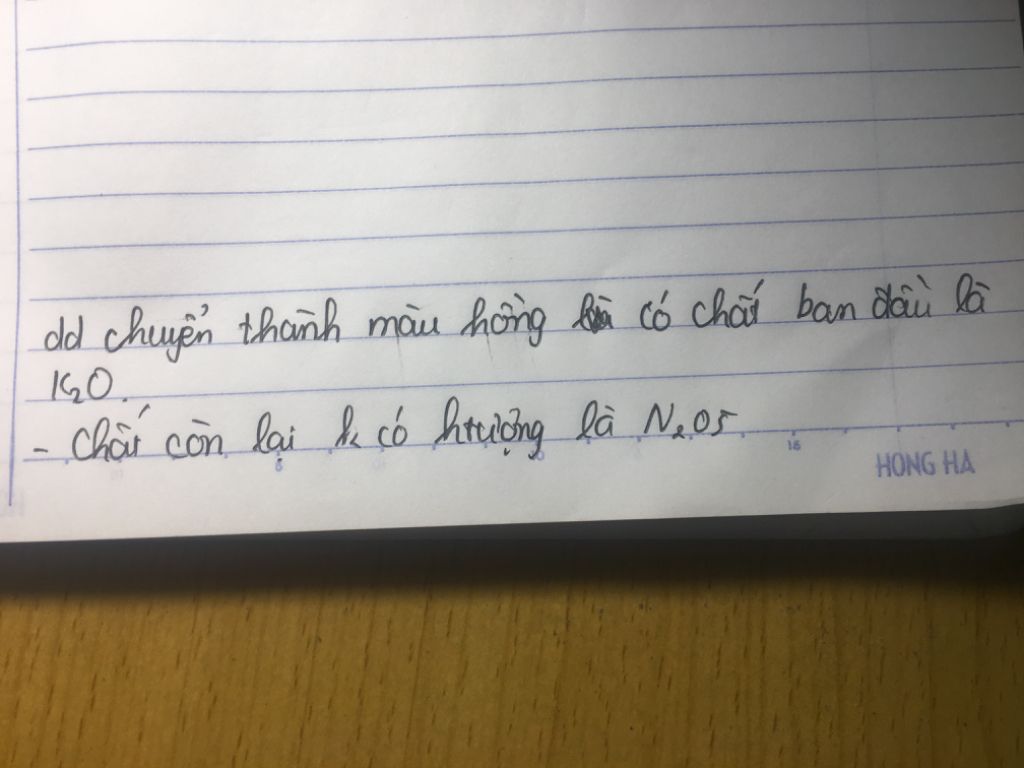 dd chuyển thành màu hồng có chất ban đầu là
K2O.
- Chất còn lại k có htượng là N2O5
5 10 15
HONG HA